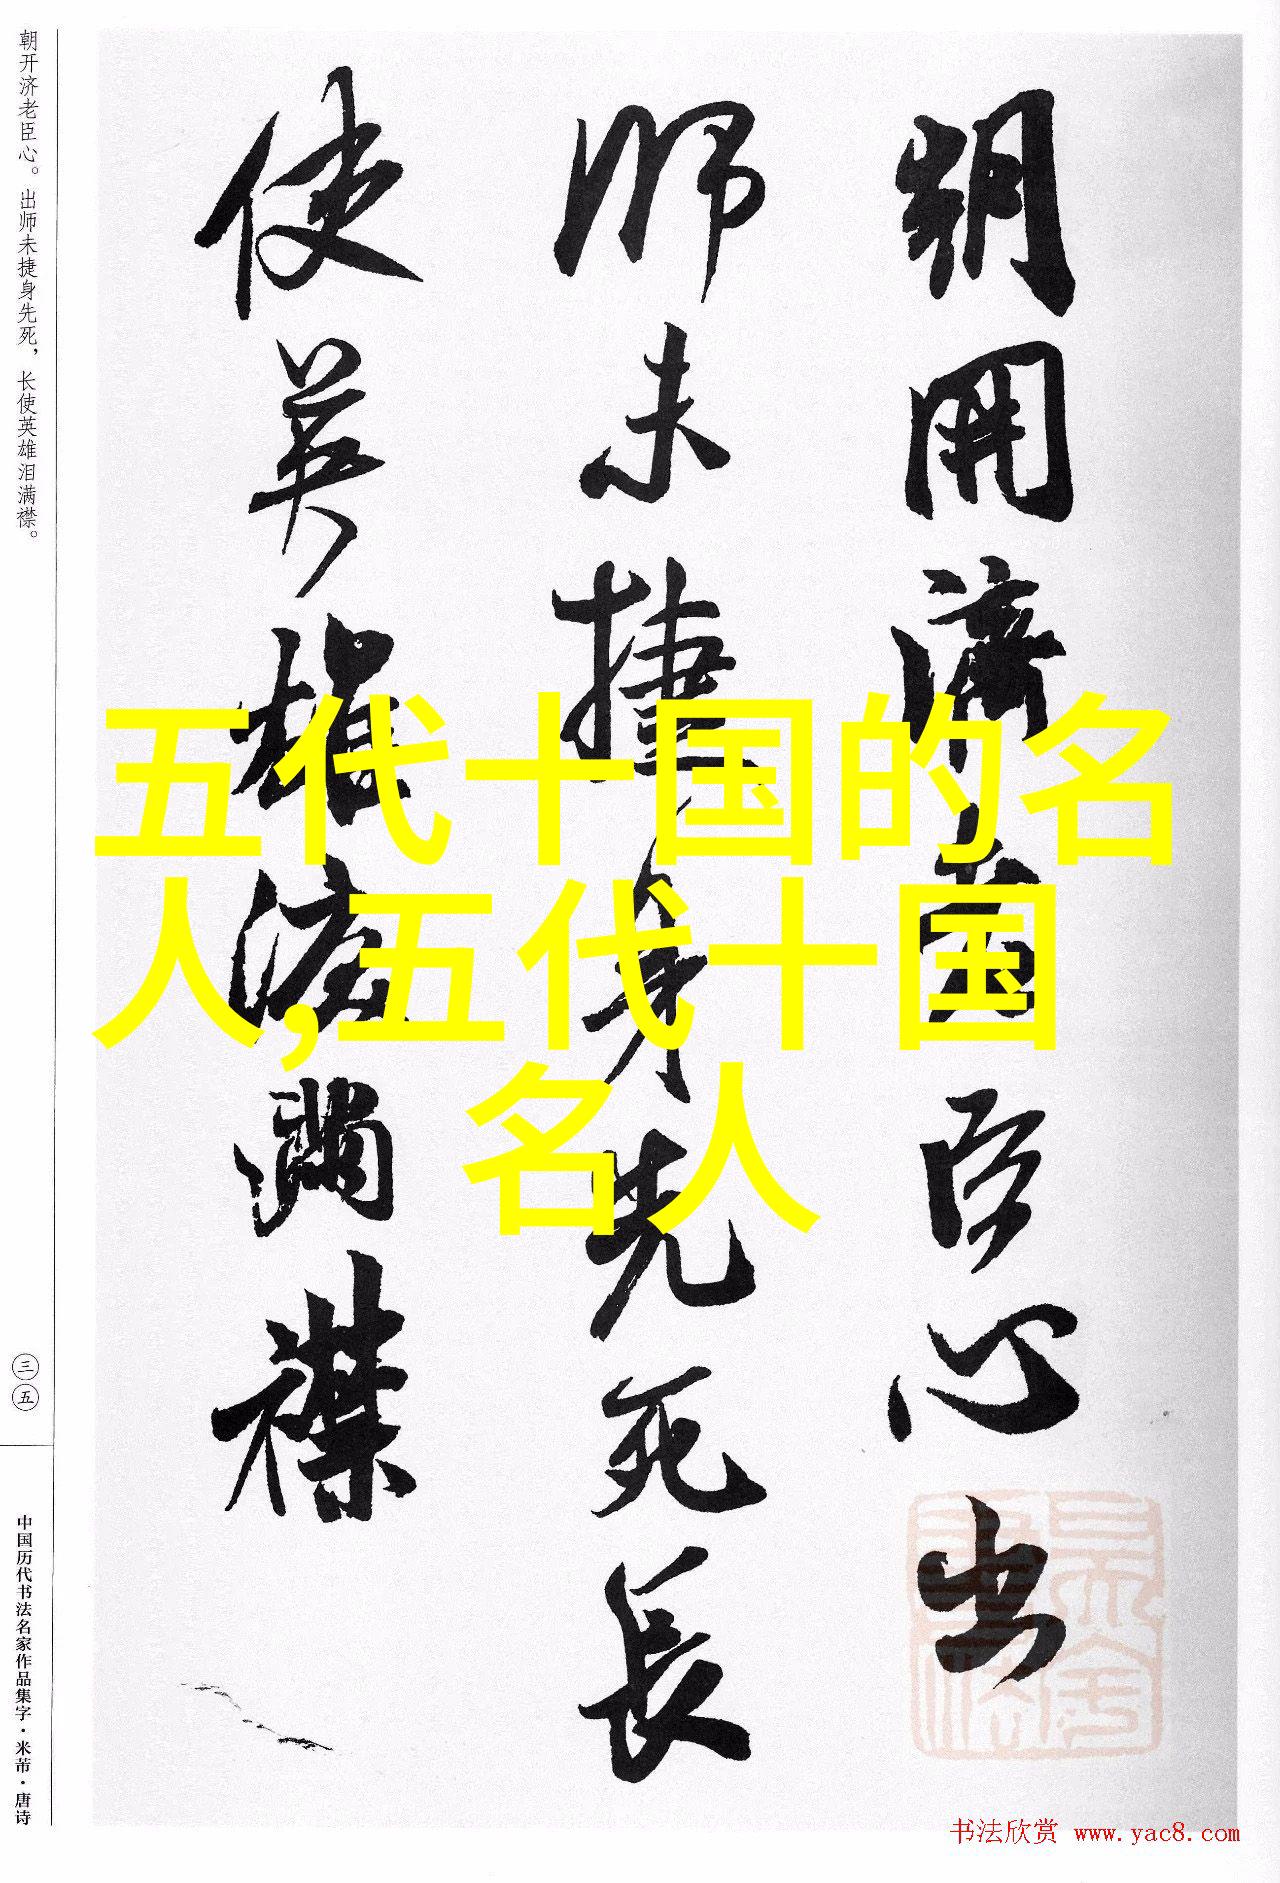 朝开济老臣心。出师未捷身先死，长使英雄泪满襟。
三五
中国历代书法名家作品集字·米芾·唐诗
朝開濟老臣心出
師未捷身先死長
使英雄淚滿襟
五代十国的名
人,五代十国
名人
书法欣赏 www.yac8.com